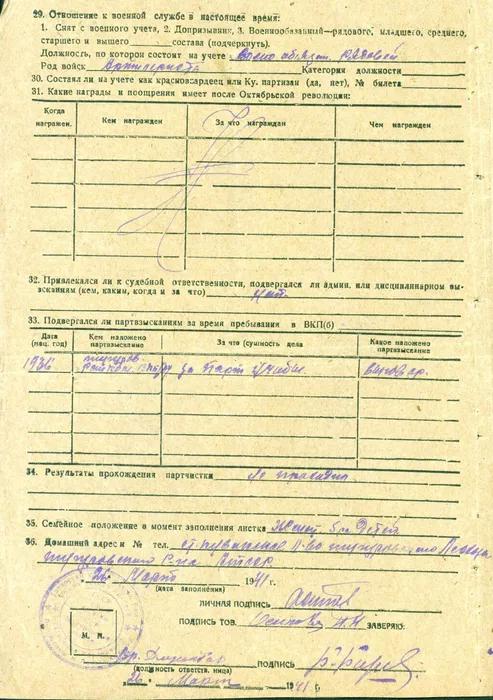 29. Отношение к военной службе в настоящее время:
1. Снят с военного учета, 2. Допризывник, 3. Военнообязанный—рядового, младшего, среднего,
старшего и вышего состава (подчеркнуть).
Должность, по которой состоит на учете Рядовой
Род войск Артилерист Категория должности
30. Состоял ли на учете как красногвардеец или Кр. партизан (да, нет), № билета
31. Какие награды и поощрения имеет после Октябрьской революции:
Когда награжден. Кем награжден За что награждан Чем награжден
32. Привлекался ли к судебной ответственности, подвергался ли админ. или дисциплинарном вы-
зысканиям (кем, каким, когда и за что) Нет.
33. Подвергался ли партвзысканиям за время пребывания в ВКП(б)
Дата (нац. год) Кем наложено партвзыскание За что (сущность дела Какое наложено партвзыскание
1936 за парт выговор.
34. Результаты прохождения партчистки Не проходил
35. Семейное положение в момент заполнения листка Женат, 5 Детей
36. Домашний адрес и № тел.
26 Марта 1941 г.
(дата заполнения)
ЛИЧНАЯ ПОДПИСЬ
ПОДПИСЬ ТОВ. ЗАВЕРЯЮ:
М. П.
ПОДПИСЬ
(должность ответств. лица)
26 Март 1941 г.